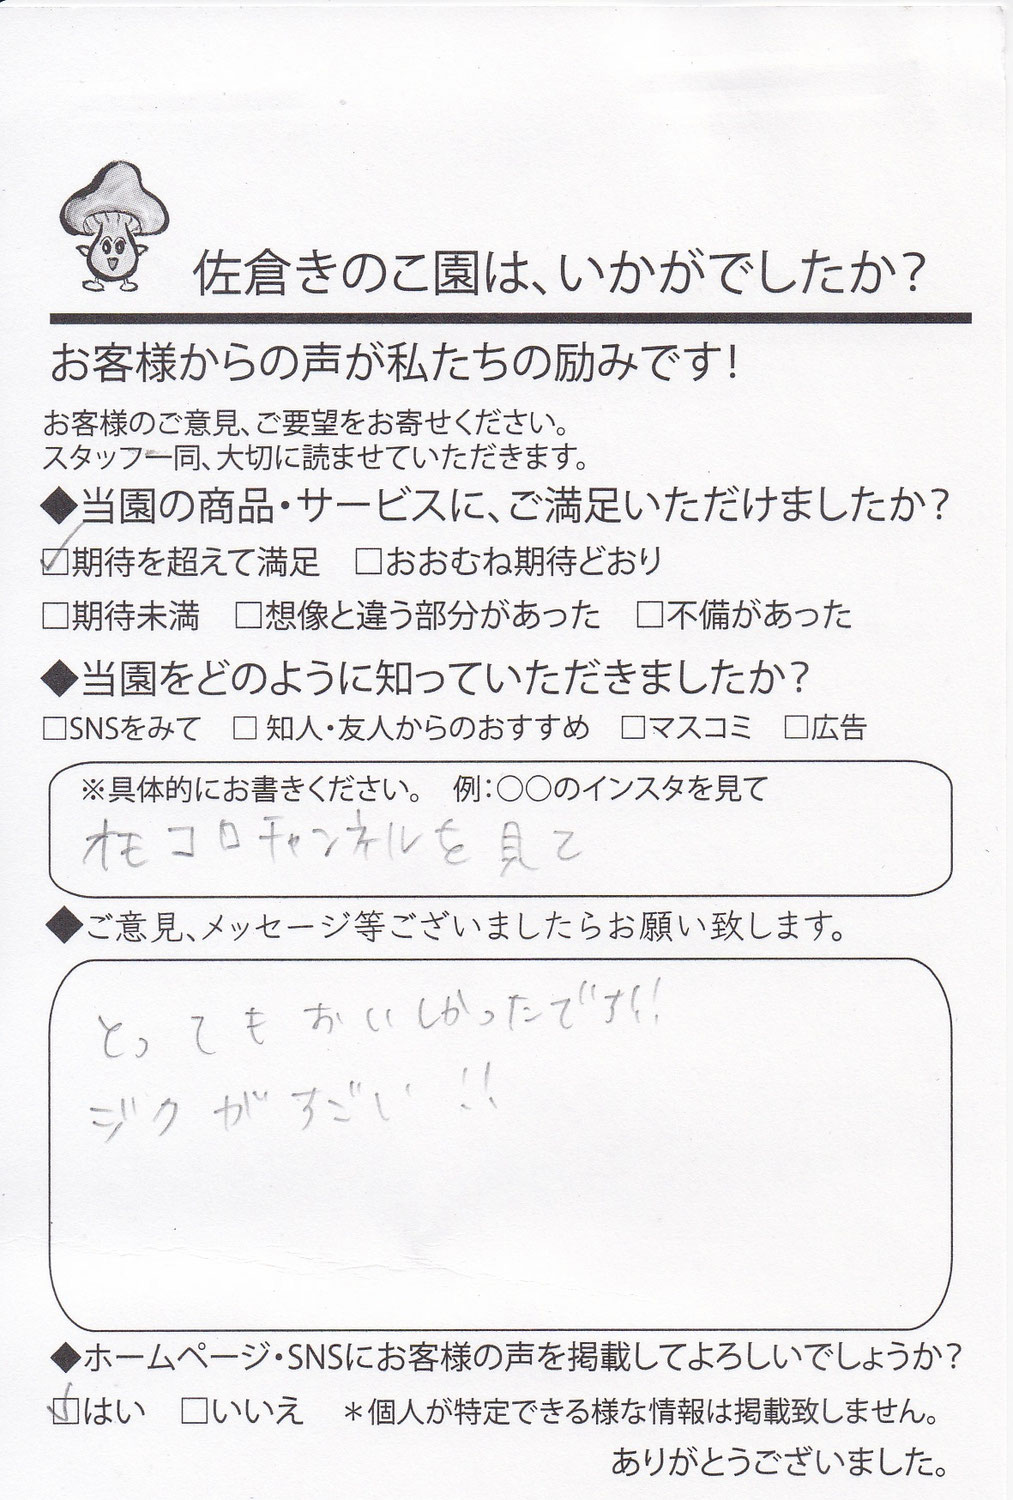 佐倉きのこ園は、いかがでしたか？
お客様からの声が私たちの励みです！
お客様のご意見、ご要望をお寄せください。
スタッフ一同、大切に読ませていただきます。
◆当園の商品・サービスに、ご満足いただけましたか？
☑期待を超えて満足 □おおむね期待どおり
□期待未満 □想像と違う部分があった □不備があった
◆当園をどのように知っていただきましたか？
□SNSをみて □ 知人・友人からのおすすめ □マスコミ □広告
※具体的にお書きください。 例：〇〇のインスタを見て
オモコロチャンネルを見て
◆ご意見、メッセージ等ございましたらお願い致します。
とってもおいしかったです!!
ジクがすごい!!
◆ホームページ・SNSにお客様の声を掲載してよろしいでしょうか？
☑はい □いいえ ＊個人が特定できる様な情報は掲載致しません。
ありがとうございました。